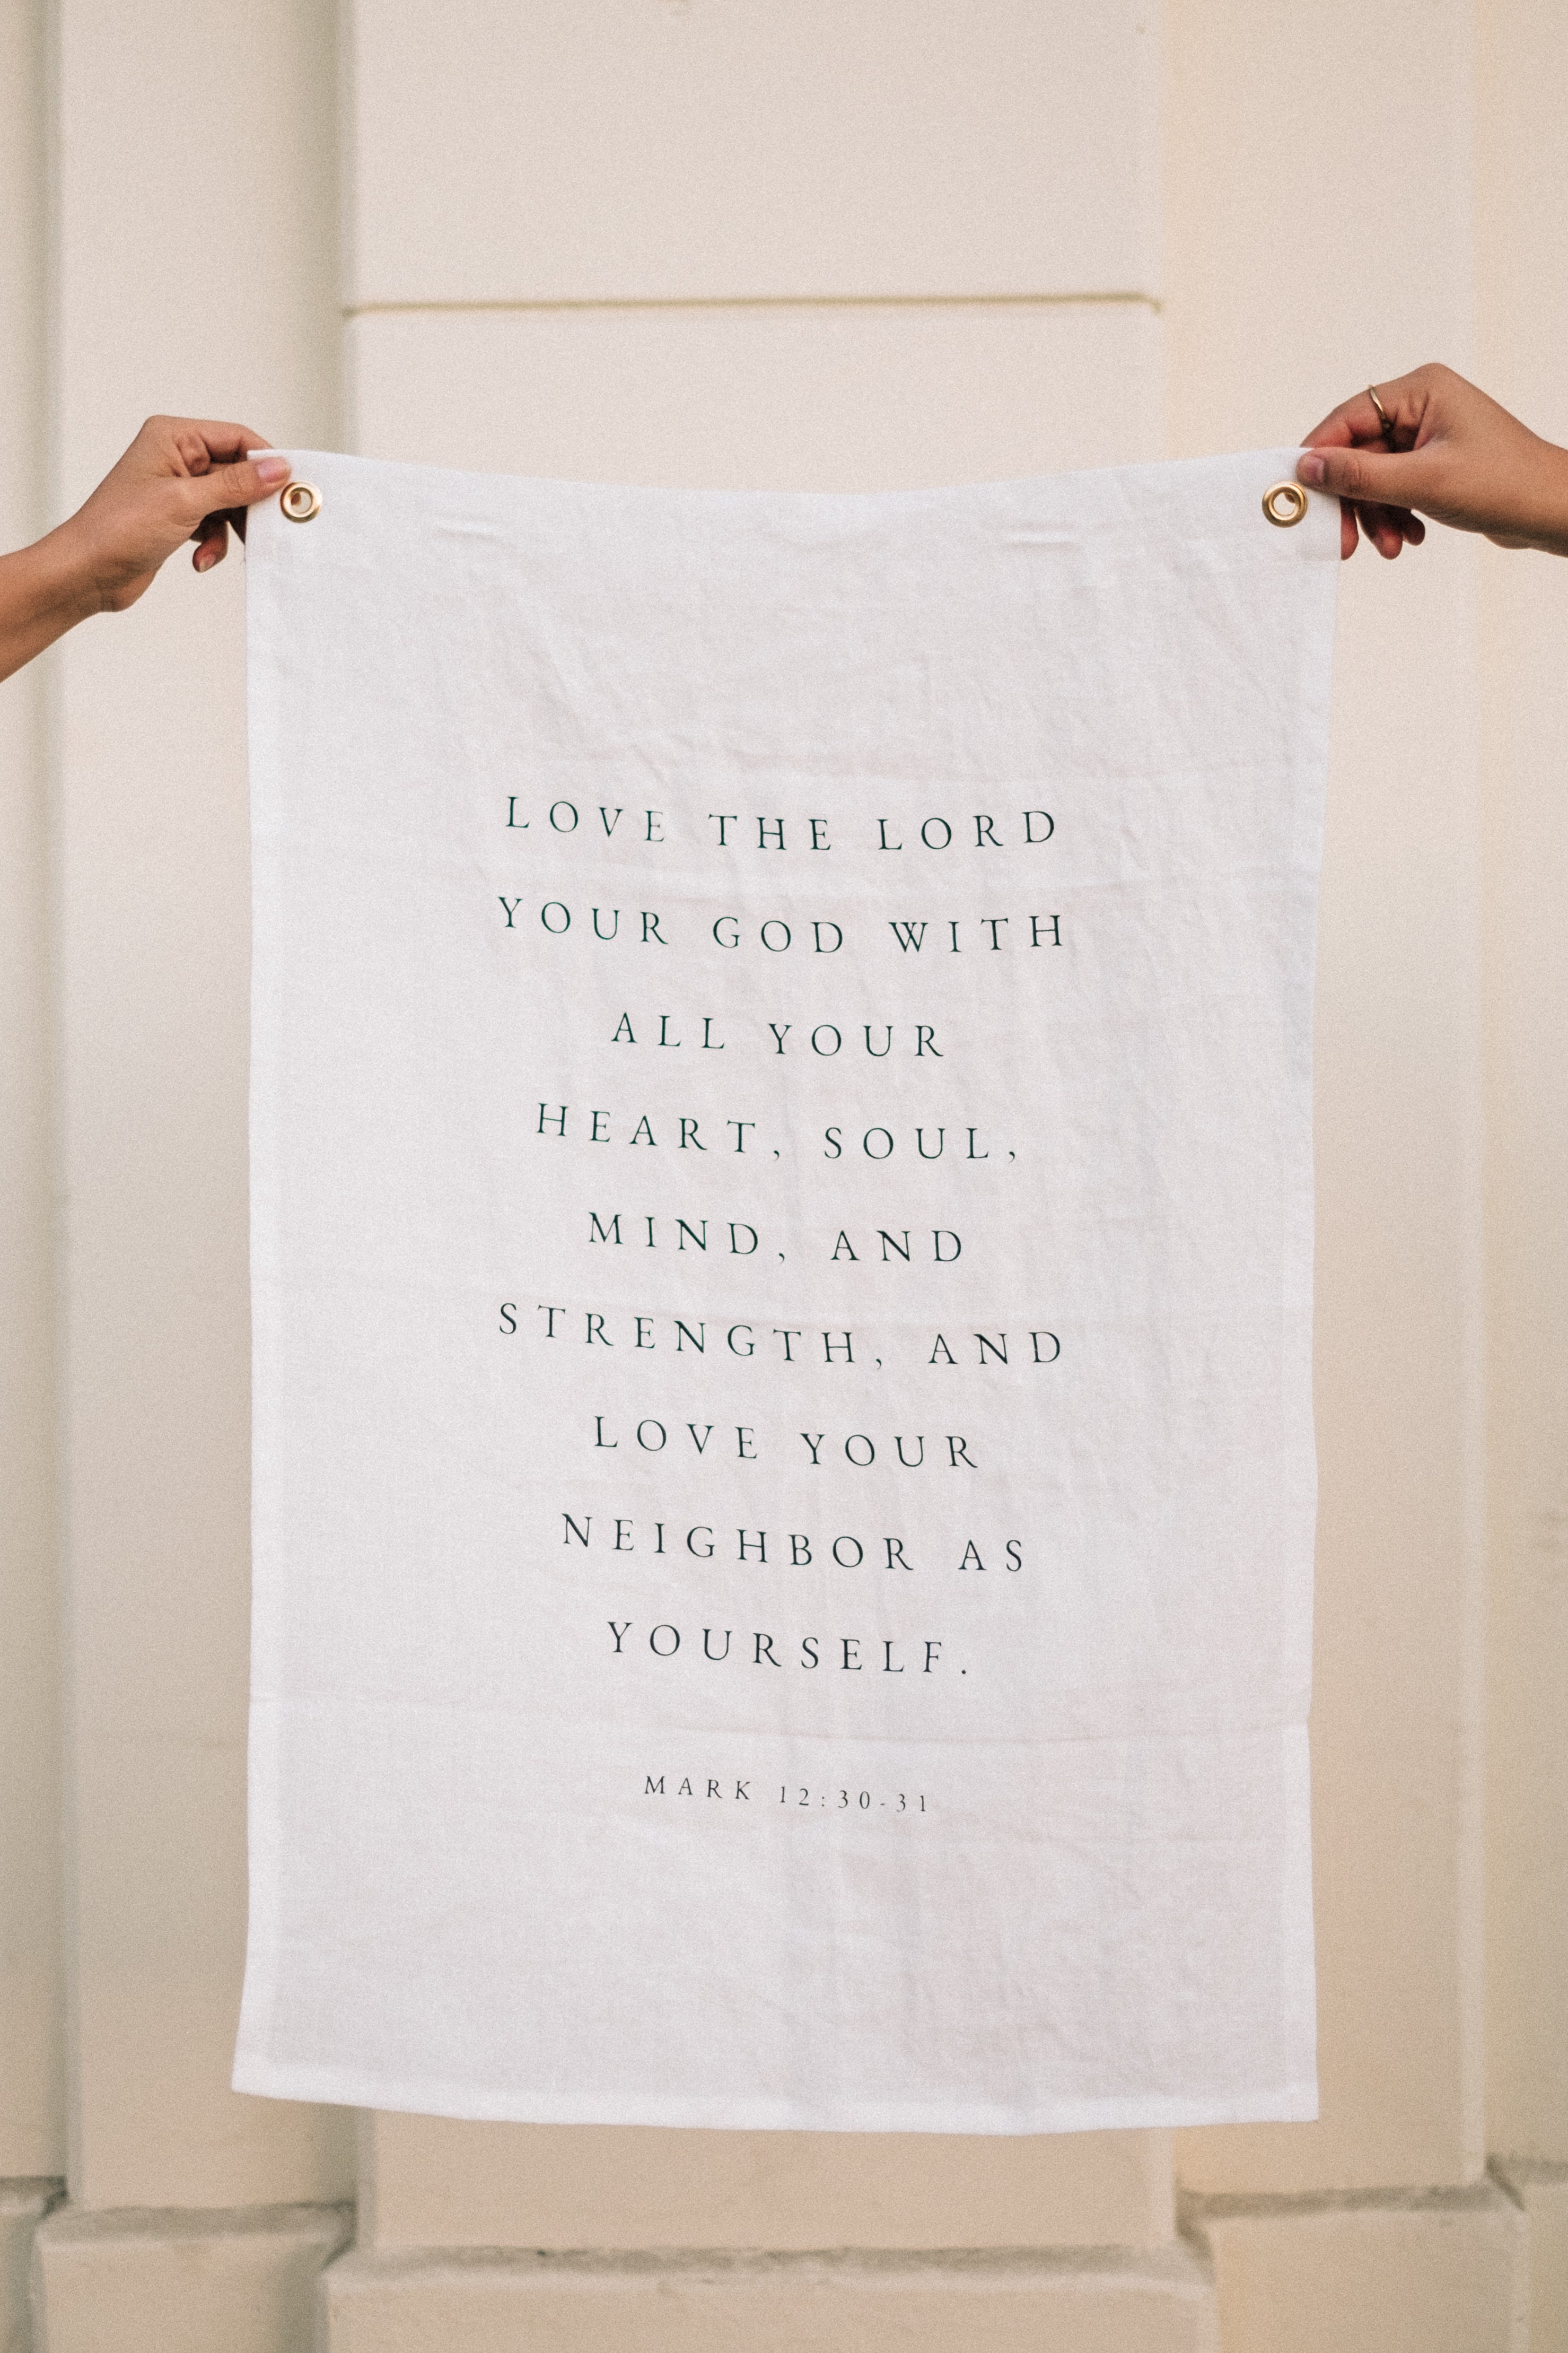 LOVE THE LORD
YOUR GOD WITH
ALL YOUR
HEART, SOUL,
MIND, AND
STRENGTH, AND
LOVE YOUR
NEIGHBOR AS
YOURSELF.
MARK 12:30-31